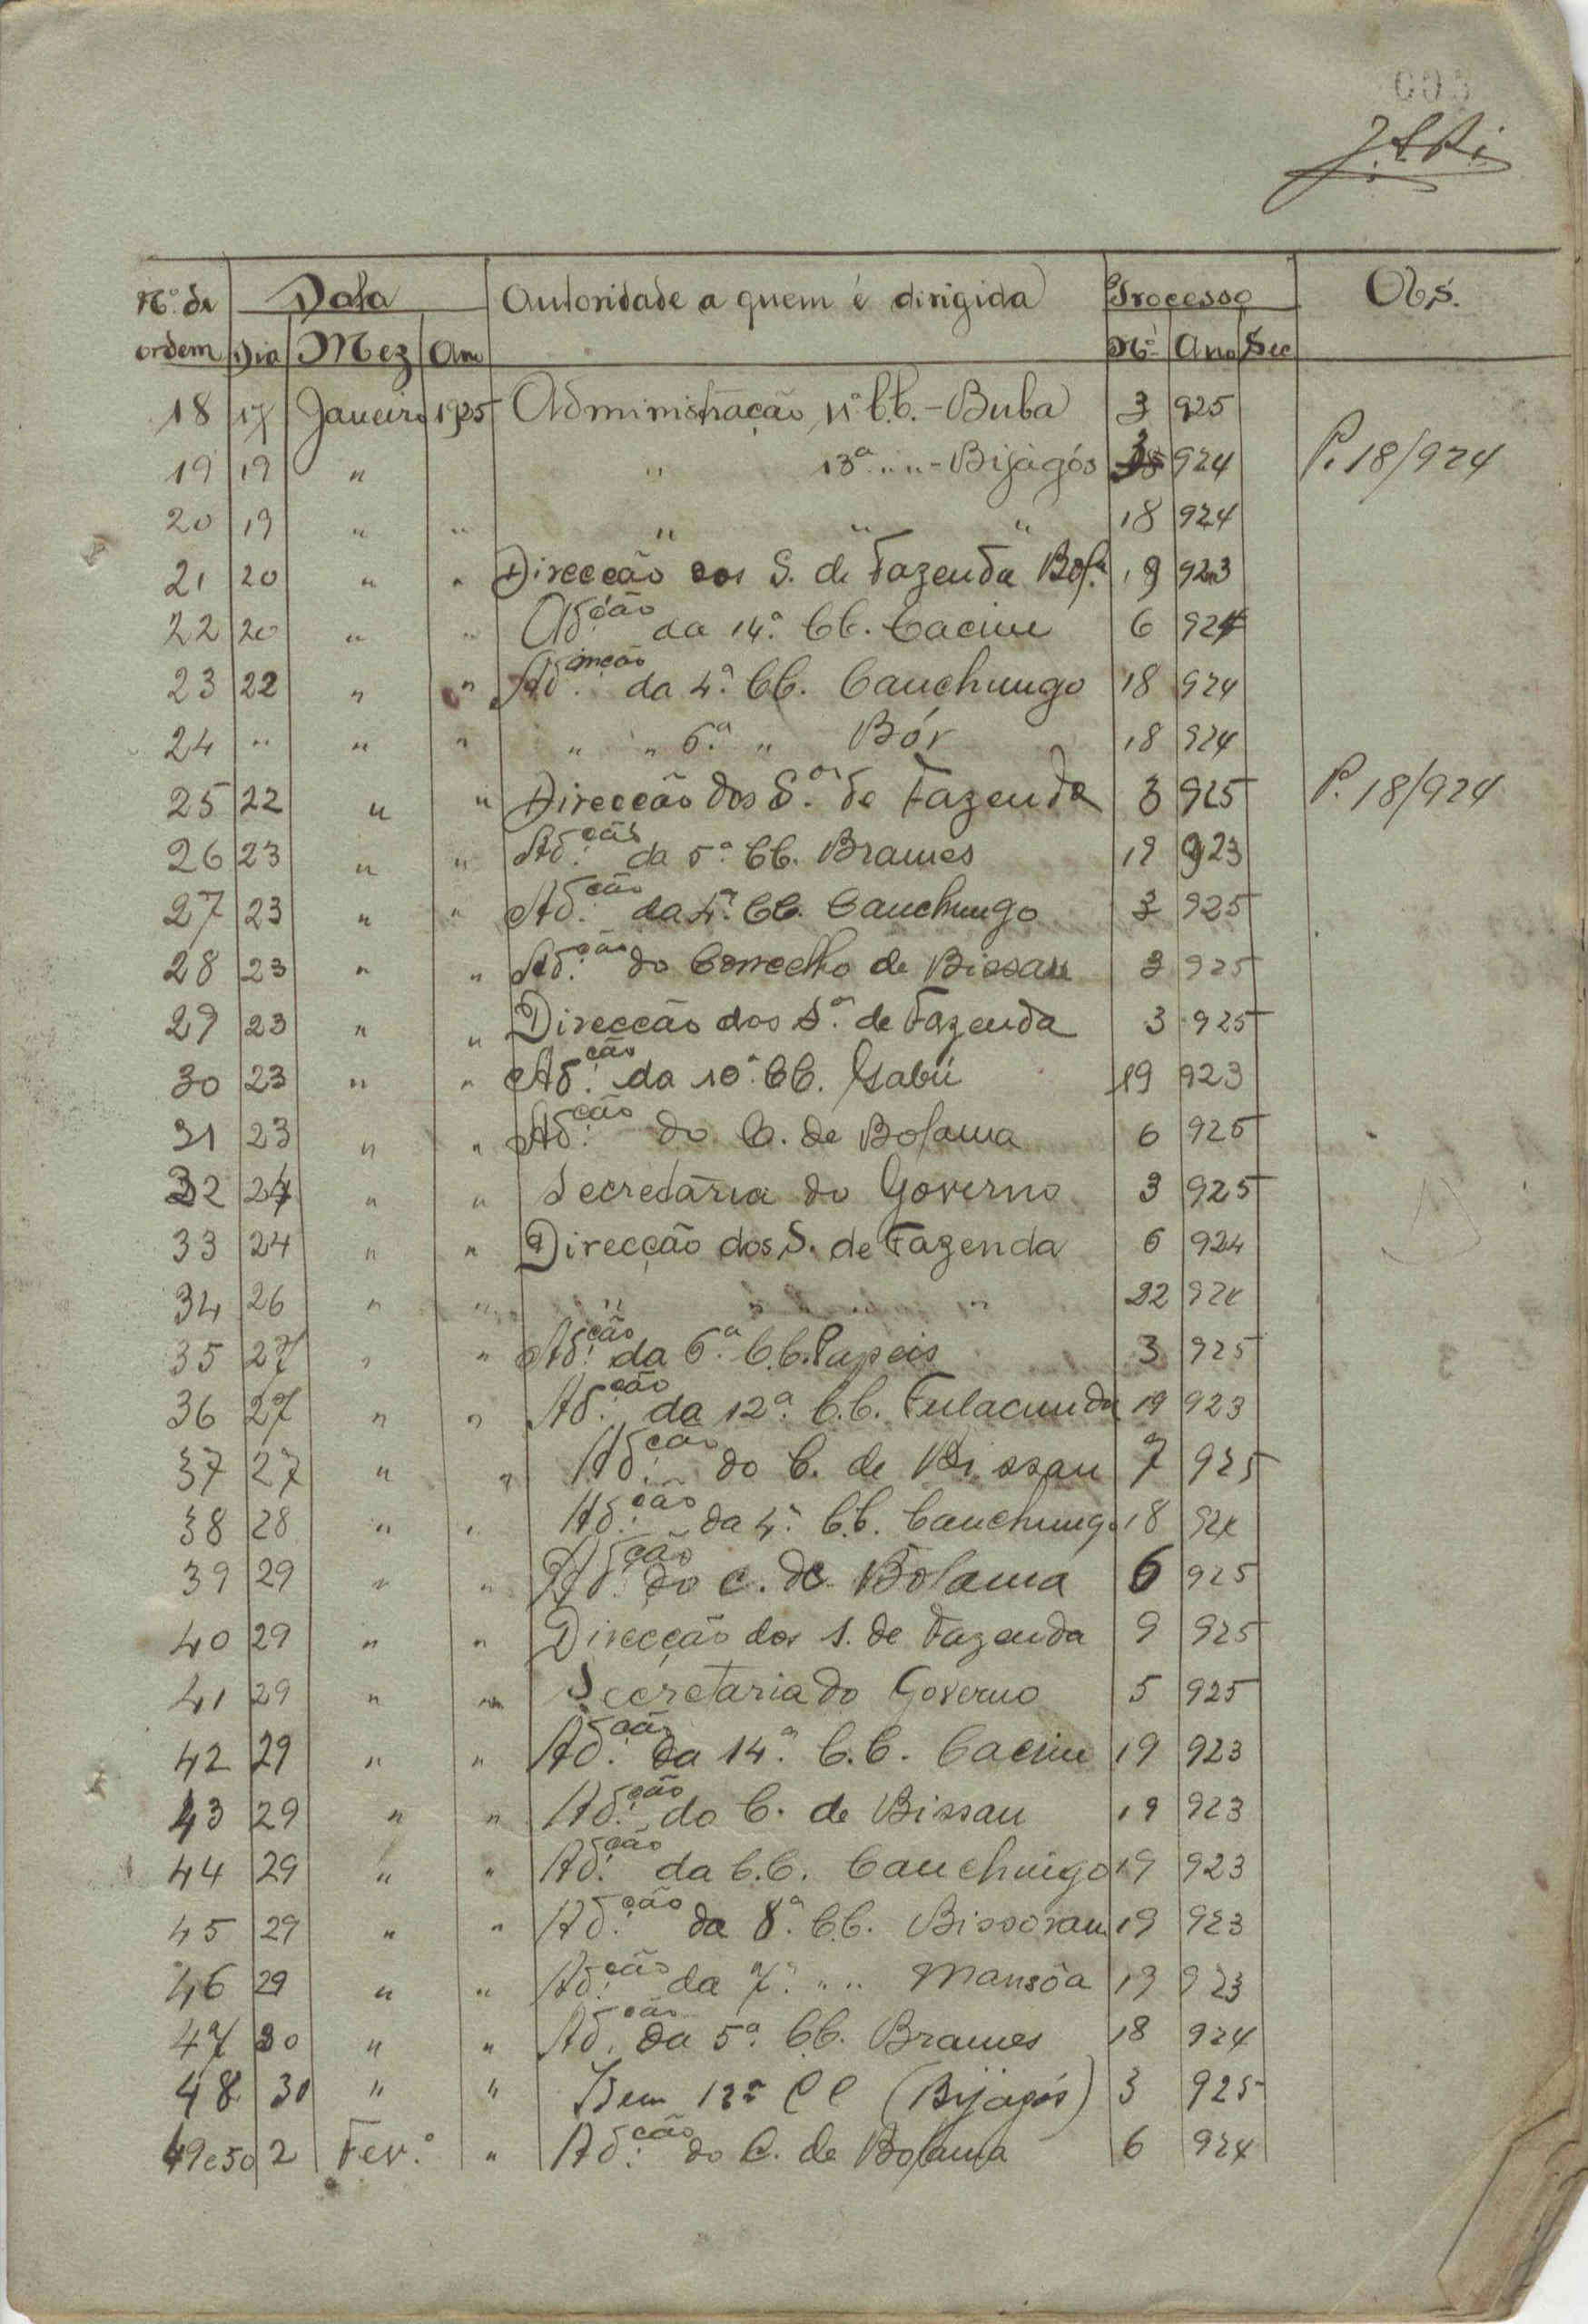 003
Nº de Data Autoridade a quem é dirigida Processo Obs.
ordem Dia Mez Ano Nº Ano Sec
18 17 Janeiro 1925 Administração 11ª C.C. - Buba 3 925
19 19 " " 13ª " " - Bijagós 924 P. 18/924
20 19 " " " " " 18 924
21 20 " " Direcção dos S. de Fazenda Bolª 19 923
22 20 " " Ad.ção da 14ª CC. Cacine 6 924
23 22 " " Ad.mção da 4ª CC. Canchungo 18 924
24 " " " " " 6ª " Bór 18 924
25 22 " " Direcção dos S.os de Fazenda 3 925 P. 18/924
26 23 " " Ad.ção da 5ª CC. Brames 19 923
27 23 " " Ad.ção da 4ª CC. Canchungo 3 925
28 23 " " Ad.ção do Concelho de Bissau 3 925
29 23 " " Direcção dos S.os de Fazenda 3 925
30 23 " " Ad.ção da 10ª CC. Gabú 19 923
31 23 " " Ad.ção do C. de Bolama 6 925
32 24 " " Secretaria do Governo 3 925
33 24 " " Direcção dos S. de Fazenda 6 924
34 26 " " " " " 22 924
35 27 " " Ad.ção da 6ª C.C. Papeis 3 925
36 27 " " Ad.ção da 12ª C.C. Fulacunda 19 923
37 27 " " Ad.ção do C. de Bissau 7 925
38 28 " " Ad.ção da 4ª C.C. Canchungo 18 924
39 29 " " Ad.ção do C. de Bolama 6 925
40 29 " " Direcção dos S. de Fazenda 9 925
41 29 " " Secretaria do Governo 5 925
42 29 " " Ad.ção da 14ª C.C. Cacine 19 923
43 29 " " Ad.ção do C. de Bissau 19 923
44 29 " " Ad.ção da C.C. Canchungo 19 923
45 29 " " Ad.ção da 8ª C.C. Bissoram 19 923
46 29 " " Ad.ção da 7ª " " Mansôa 19 923
47 30 " " Ad.ção da 5ª CC. Brames 18 924
48 30 " " Idem 13ª CC (Bijagós) 3 925
49 e 50 2 Fev.º " Ad.ção do C. de Bolama 6 924